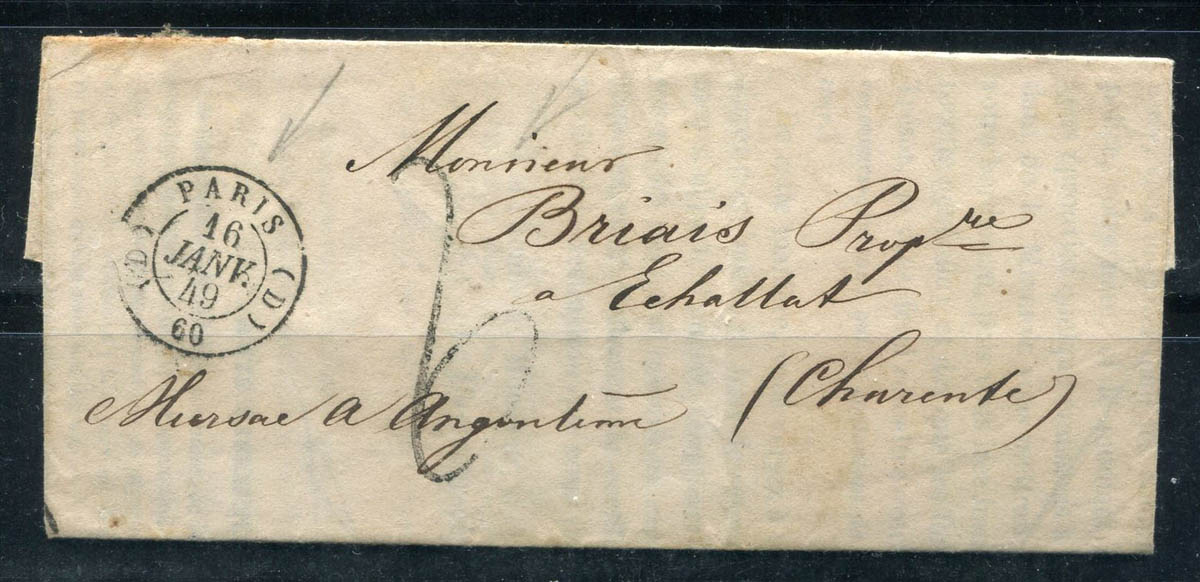 PARIS
(D) 16 (D)
JANV.
49
60
Monsieur
Briais Propre
a Echallat
(Charente)
Mersac a Angoulème